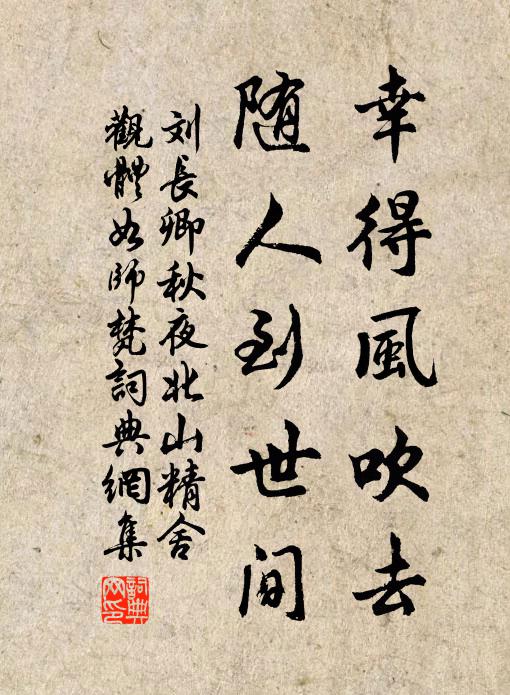 幸得風吹去
随人到世间
刘長卿秋夜北山精舍
觀體如師梵詞典網集
詞典网印